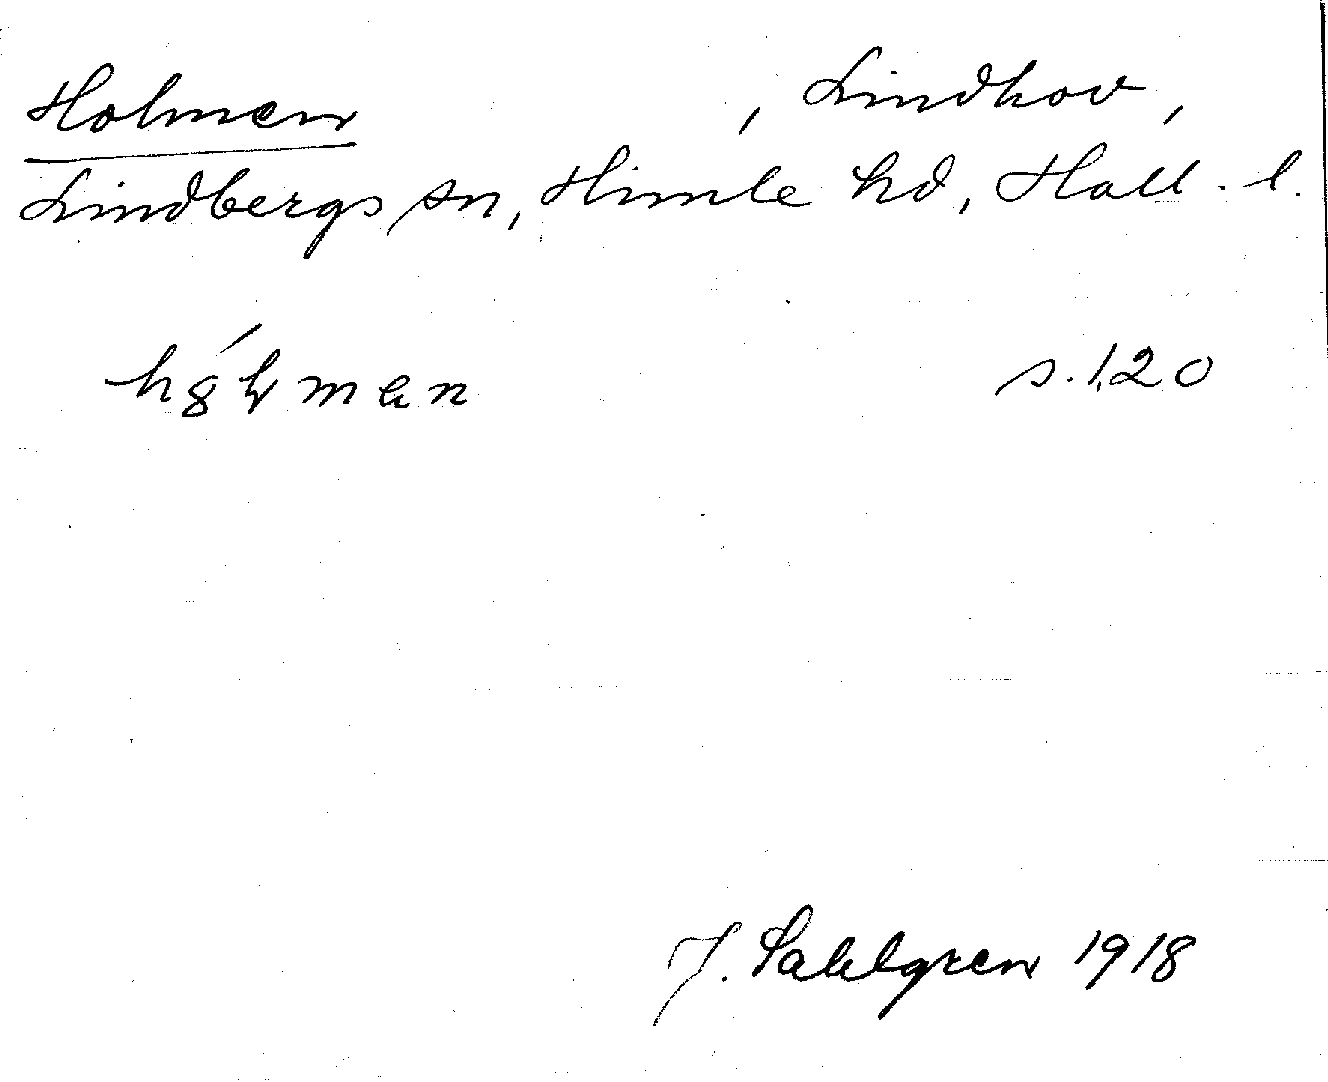 Holmen , Lindhov,
Lindbergs sn, Himle hd, Hall. l.
s. 120
J. Sahlgren 1918